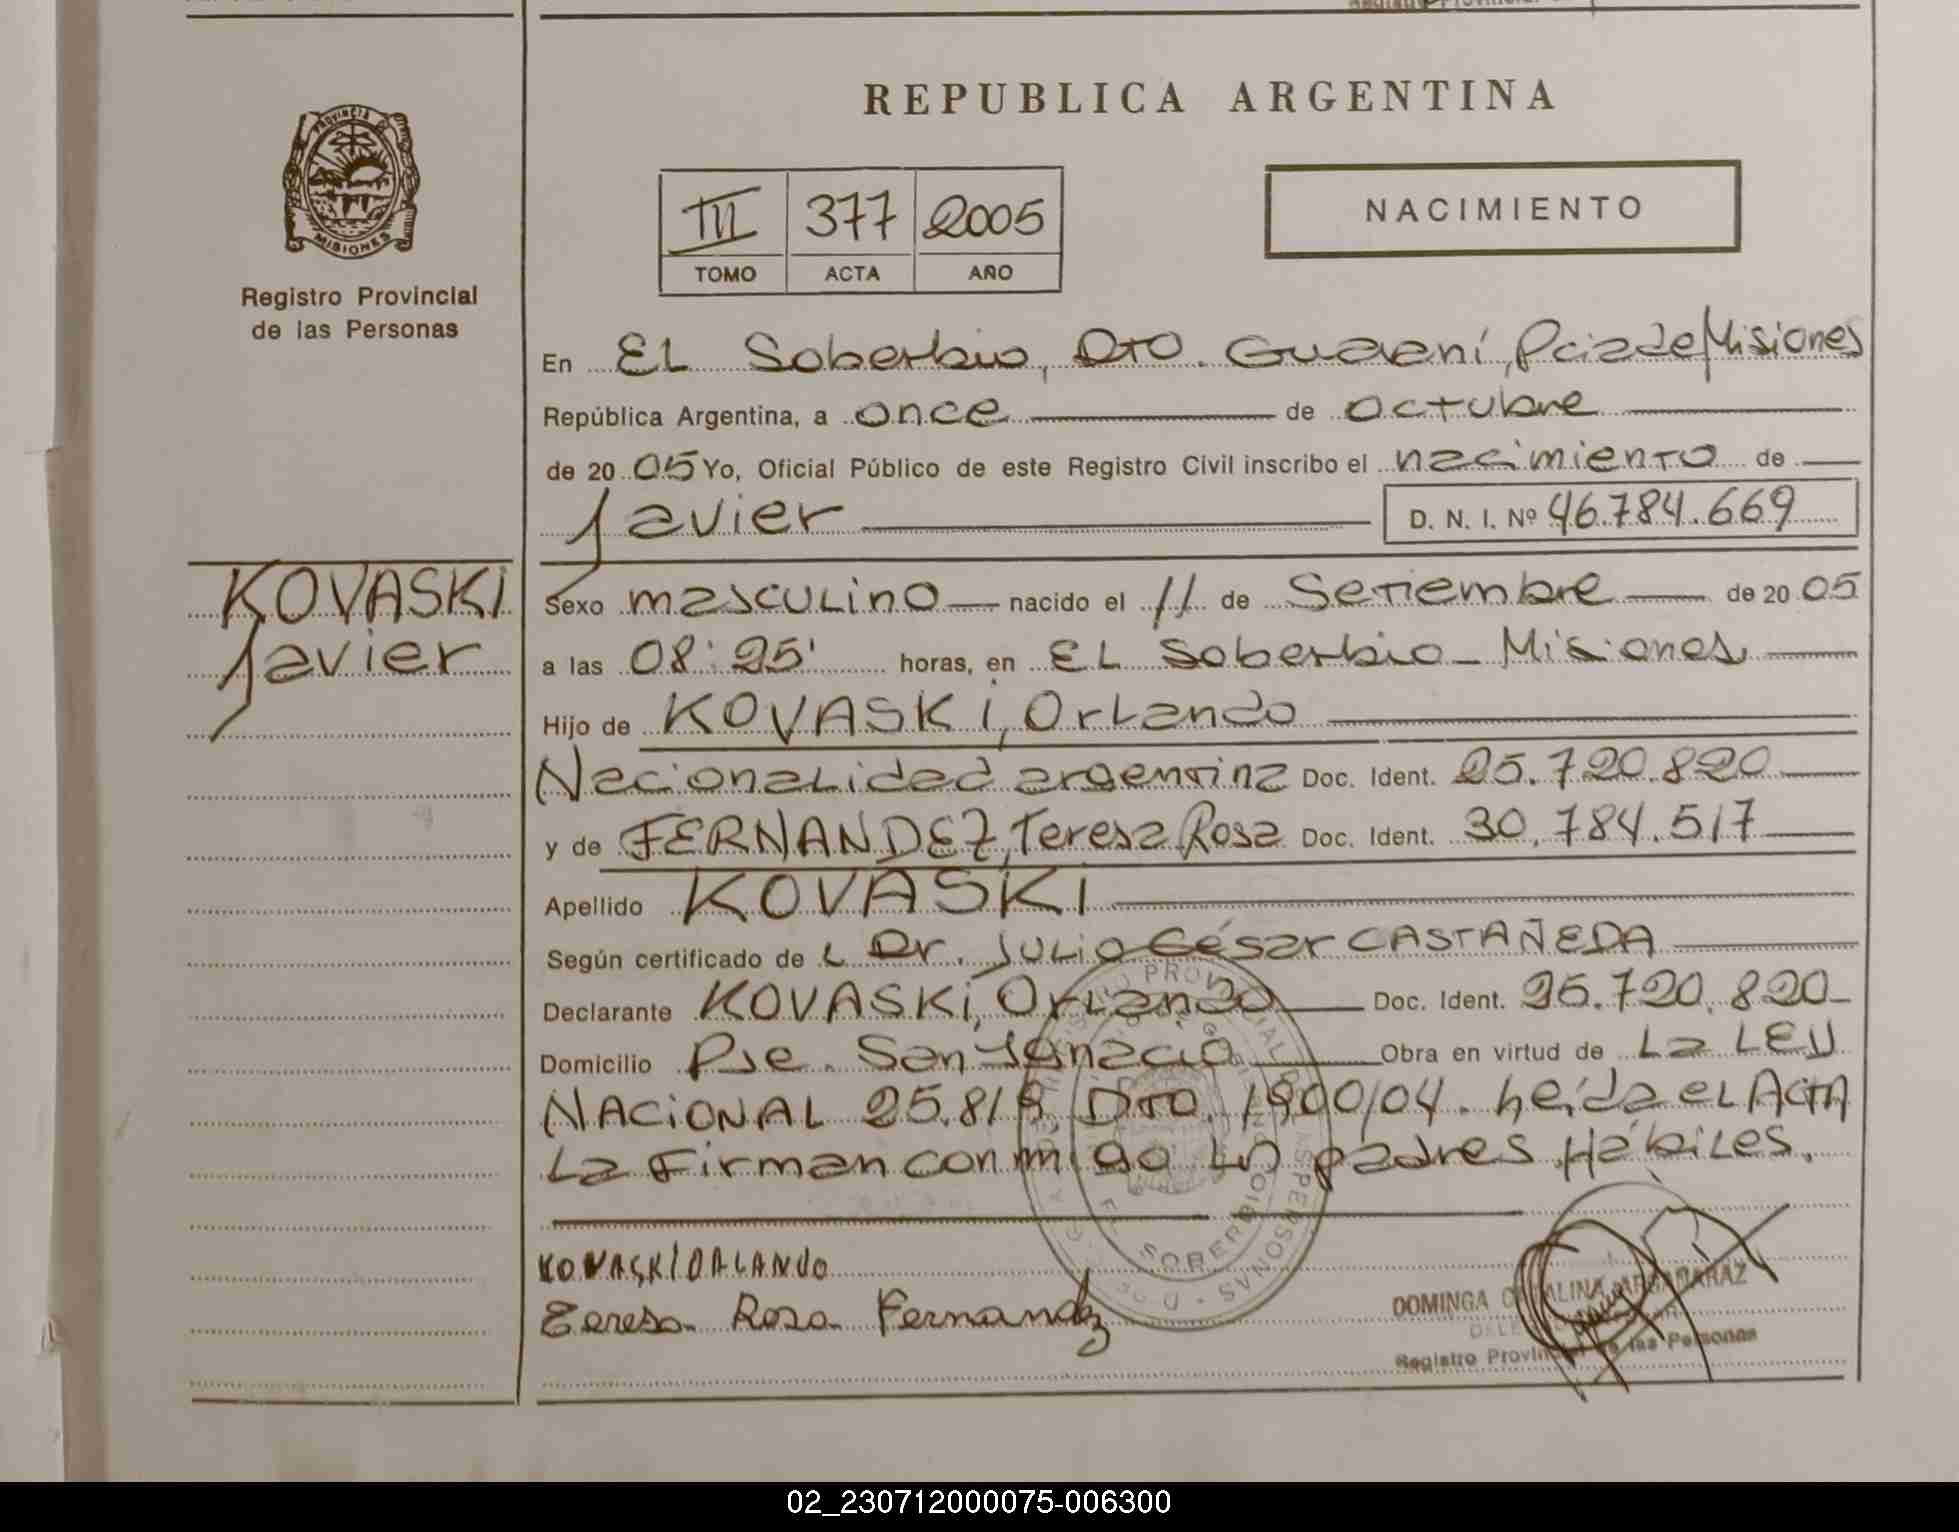 REPUBLICA ARGENTINA
PROVINCIA DE
MISIONES
Registro Provincial
de las Personas
III 377 2005
TOMO ACTA AÑO
NACIMIENTO
En EL Soberbio, Dto. Guaraní, Pcia de Misiones
República Argentina, a once de octubre
de 2005 Yo, Oficial Público de este Registro Civil inscribo el nacimiento de
Javier D. N. I. Nº 46.784.669
KOVASKI
Javier
Sexo masculino nacido el 11 de Setiembre de 2005
a las 08:25' horas, en EL Soberbio - Misiones
Hijo de KOVASKI, Orlando
Nacionalidad argentina Doc. Ident. 25.720.820
y de FERNANDEZ, Teresa Rosa Doc. Ident. 30.784.517
Apellido KOVASKI
Según certificado de L Dr. Julio César CASTAÑEDA
Declarante KOVASKI, Orlando Doc. Ident. 25.720.820
Domicilio Pje. San Ignacio Obra en virtud de La LEY
NACIONAL 25.819 DTO. 1900/04. Leída el ACTA
La Firman conmigo Los padres Hábiles.
KOVASKI ORLANDO
Teresa Rosa Fernandez
EL SOBERBIO
DOMINGA CATALINA ARGAÑARAZ
Registro Provincial de las Personas
02_230712000075-006300